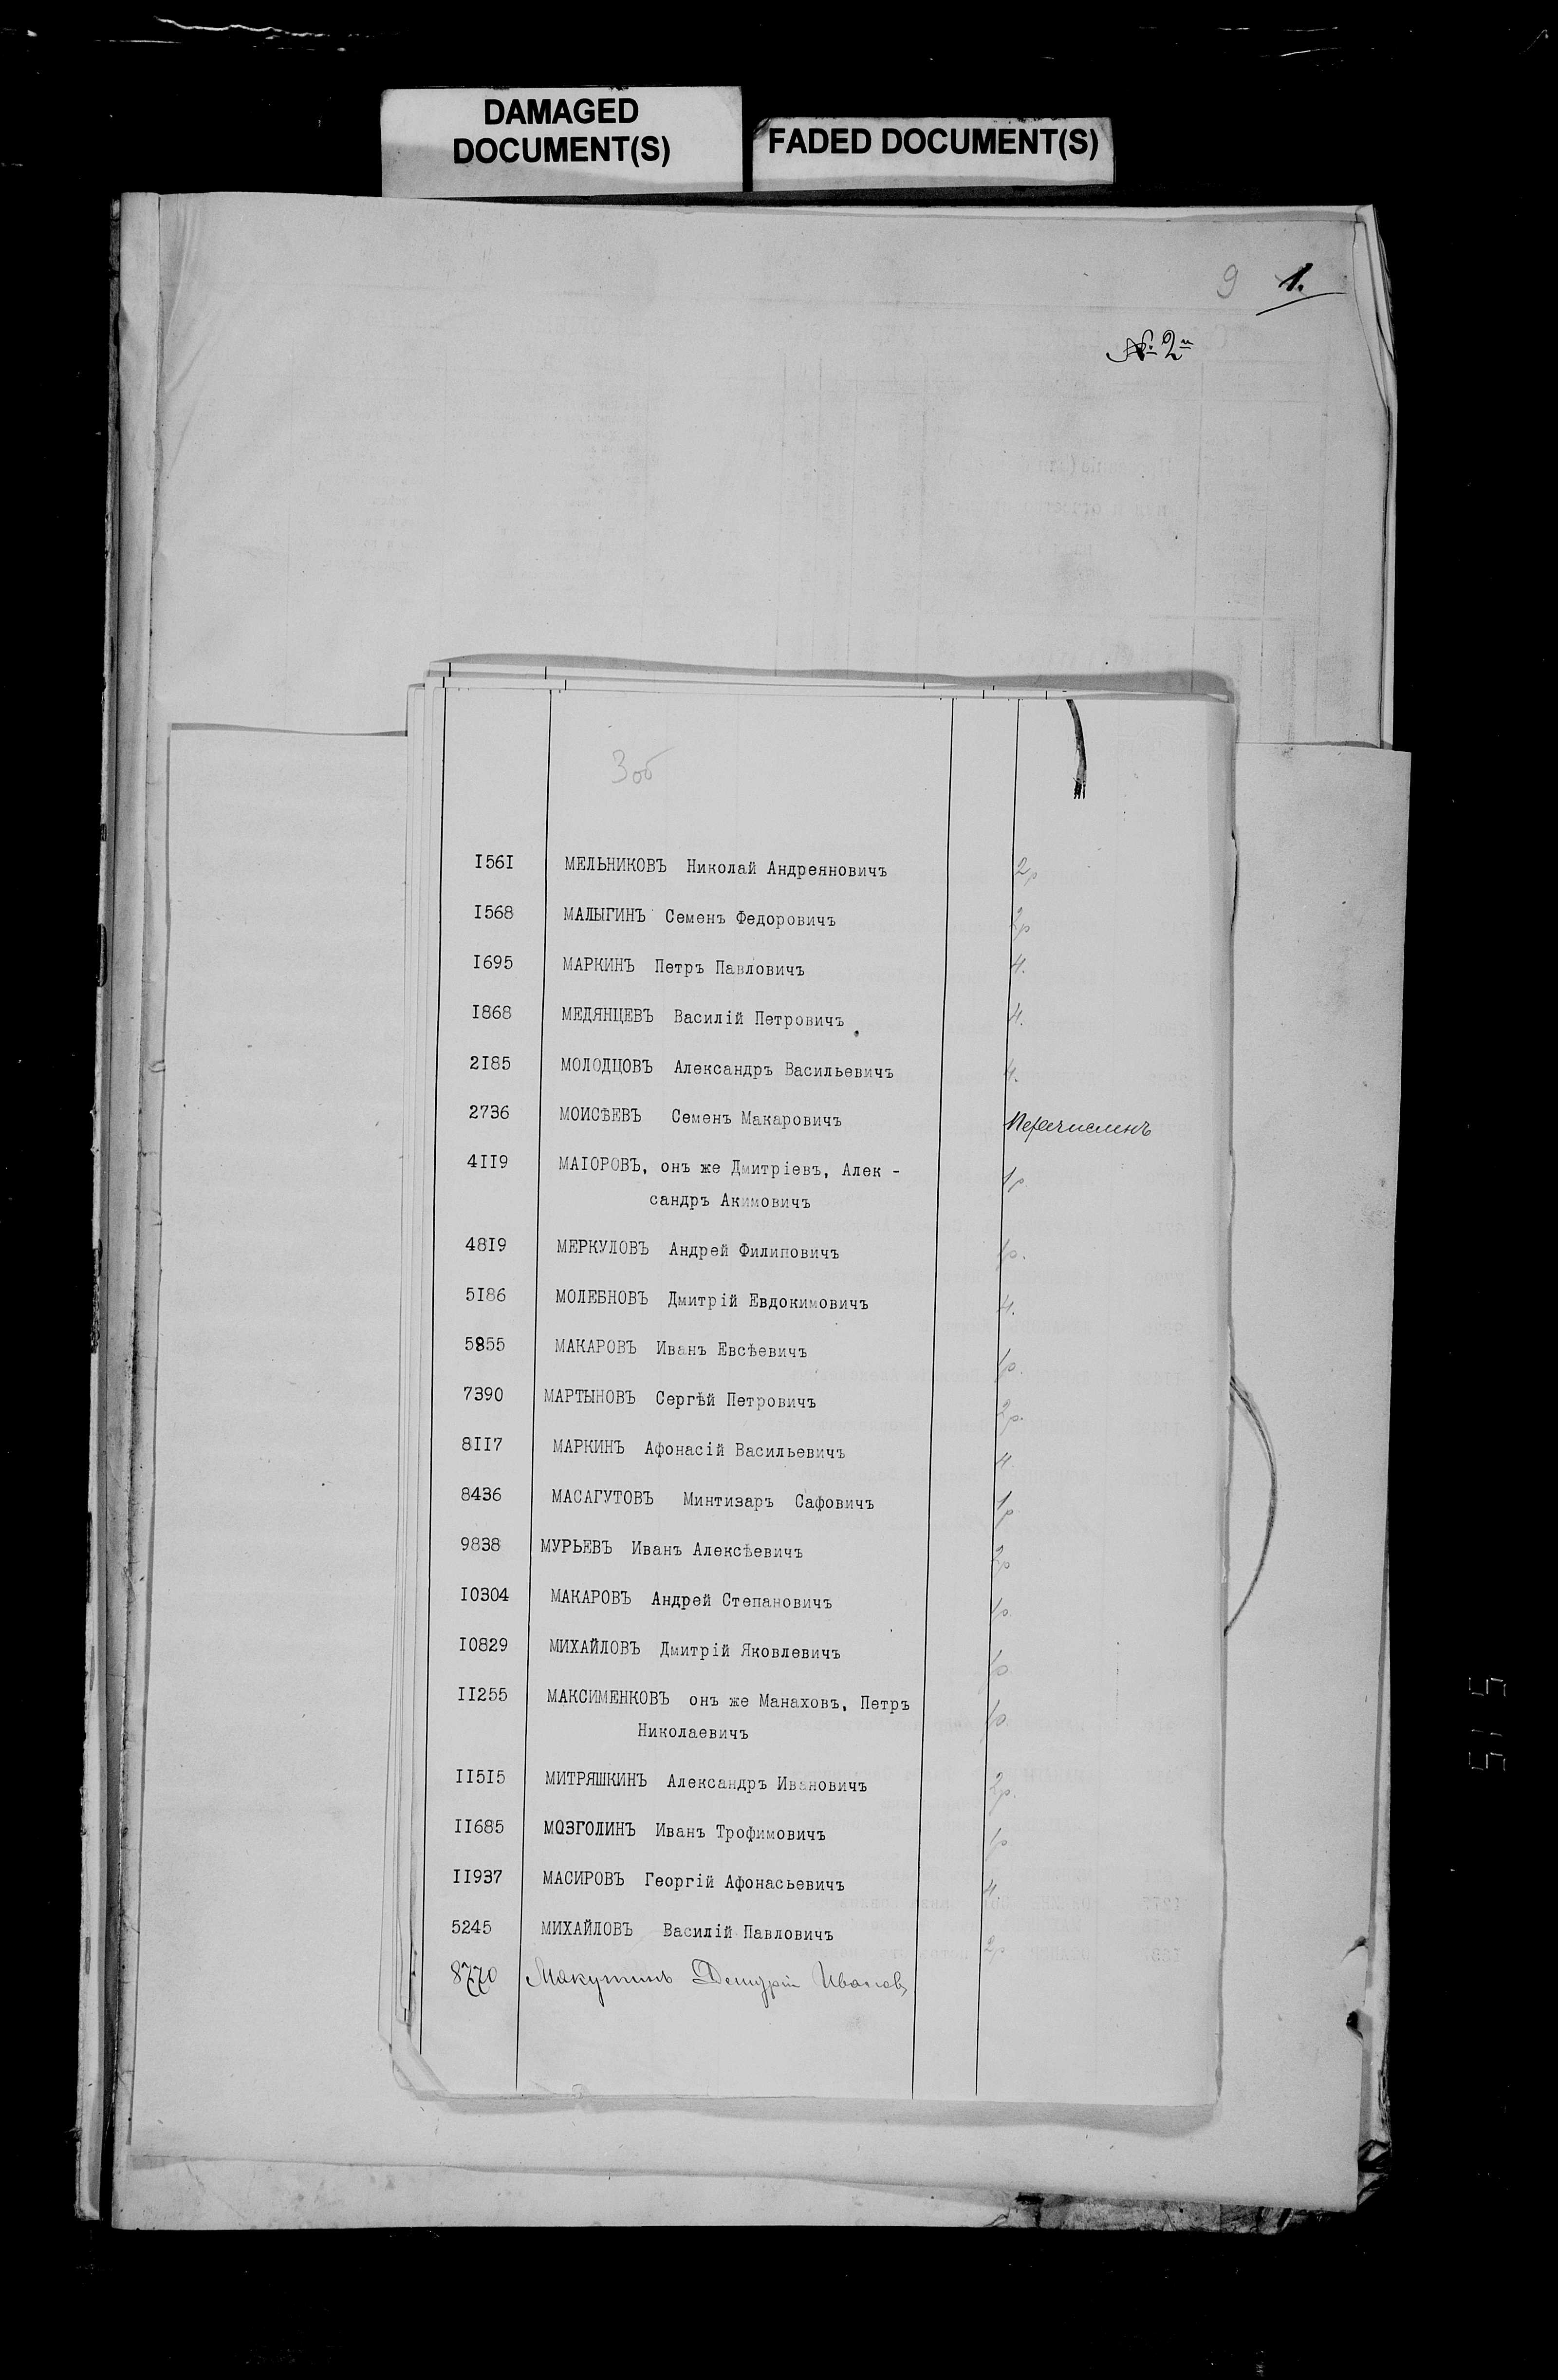 DAMAGED
DOCUMENT(S)
FADED DOCUMENT(S)
9 1.
№ 2
3об
I56I МЕЛЬНИКОВЪ Николай Андреяновичъ 2р
I568 МАЛЫГИНЪ Семенъ Федоровичъ 2р
I695 МАРКИНЪ Петръ Павловичъ Н.
I868 МЕДЯНЦЕВЪ Василій Петровичъ Н.
2I85 МОЛОДЦОВЪ Александръ Васильевичъ Н.
2736 МОИСѢЕВЪ Семенъ Макаровичъ Перечисленъ
4II9 МАIОРОВЪ, онъ же Дмитріевъ, Алек - 1р
сандръ Акимовичъ
48I9 МЕРКУЛОВЪ Андрей Филиповичъ 1р.
5I86 МОЛЕБНОВЪ Дмитрій Евдокимовичъ Н.
5855 МАКАРОВЪ Иванъ Евсѣевичъ 1р.
7390 МАРТЫНОВЪ Сергѣй Петровичъ 2р.
8II7 МАРКИНЪ Афонасій Васильевичъ Н.
8436 МАСАГУТОВЪ Минтизаръ Сафовичъ 1р
9838 МУРЬЕВЪ Иванъ Алексѣевичъ 2р
I0304 МАКАРОВЪ Андрей Степановичъ 1р.
I0829 МИХАЙЛОВЪ Дмитрій Яковлевичъ 1р
II255 МАКСИМЕНКОВЪ онъ же Манаховъ, Петръ 1р.
Николаевичъ
II5I5 МИТРЯШКИНЪ Александръ Ивановичъ 2р.
II685 МОЗГОЛИНЪ Иванъ Трофимовичъ 1р
II937 МАСИРОВЪ Георгій Афонасьевичъ Н
5245 МИХАЙЛОВЪ Василій Павловичъ 2р
8770 Макутинъ Дмитрій Иванов
515